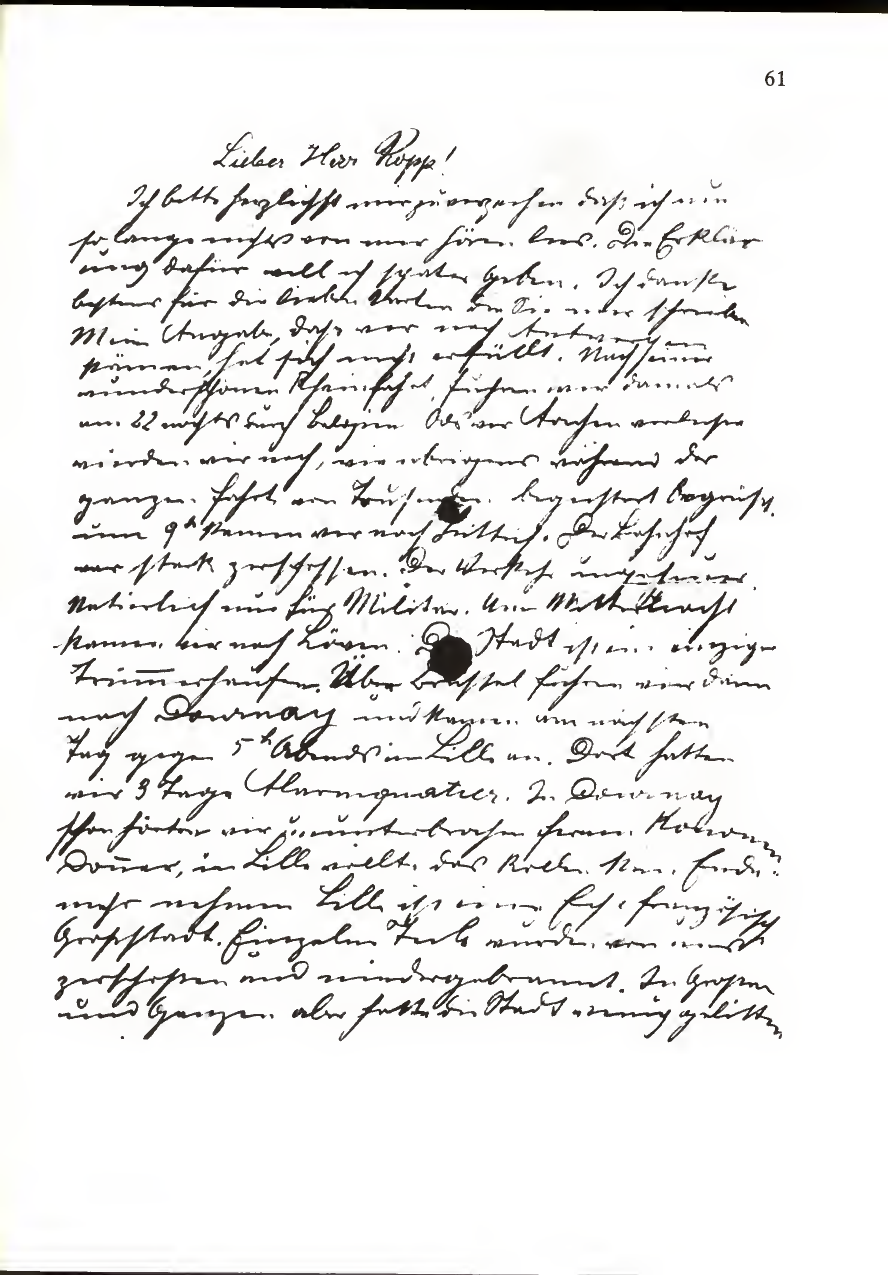 61
Lieber Herr Popp!
Ich bitte herzlichst mir zu verzeihen daß ich nun
so lange nichts von mir hören lies. Die Erklär
ung dafür will ich später geben. Ich danke
bestens für die lieben Karten die Sie mir schreiben
Meine Angabe, daß wir nach Antwerpen
kämen, hat sich nicht erfüllt. Nach einer
wunderschönen Rheinfahrt, fuhren wir damals
am 22 nachts durch Belgien. Als wir Aachen verliesen
wurden wir noch, wie übrigens während der
ganzen Fahrt von Tausenden begeistert begrüßt.
um 9h kamen wir nach Lüttich. Der Bahnhof
war stark zerschossen. Der Verkehr ungeheuer.
Natierlich nur für Militär. Um Mitternacht
kamen wir nach Löven. Die Stadt ist ein einziger
Trümmerhaufen. Über Brüssel fuhren wir dann
nach Dournay und kamen am nächsten
Tag gegen 5h Abends in Lille an. Dort hatten
wir 3 Tage Alarmquatier. In Dournay
schon hörten wir ununterbrochen fernen Kanonen
Donner, in Lille wollte das Rollen kein Ende
mehr nehmen Lille ist eine Echt französisch
Grosstadt. Einzelne Teile wurden von uns
zerschossen und niedergebrannt. In Großen
und Ganzen aber hatte die Stadt wenig gelitten